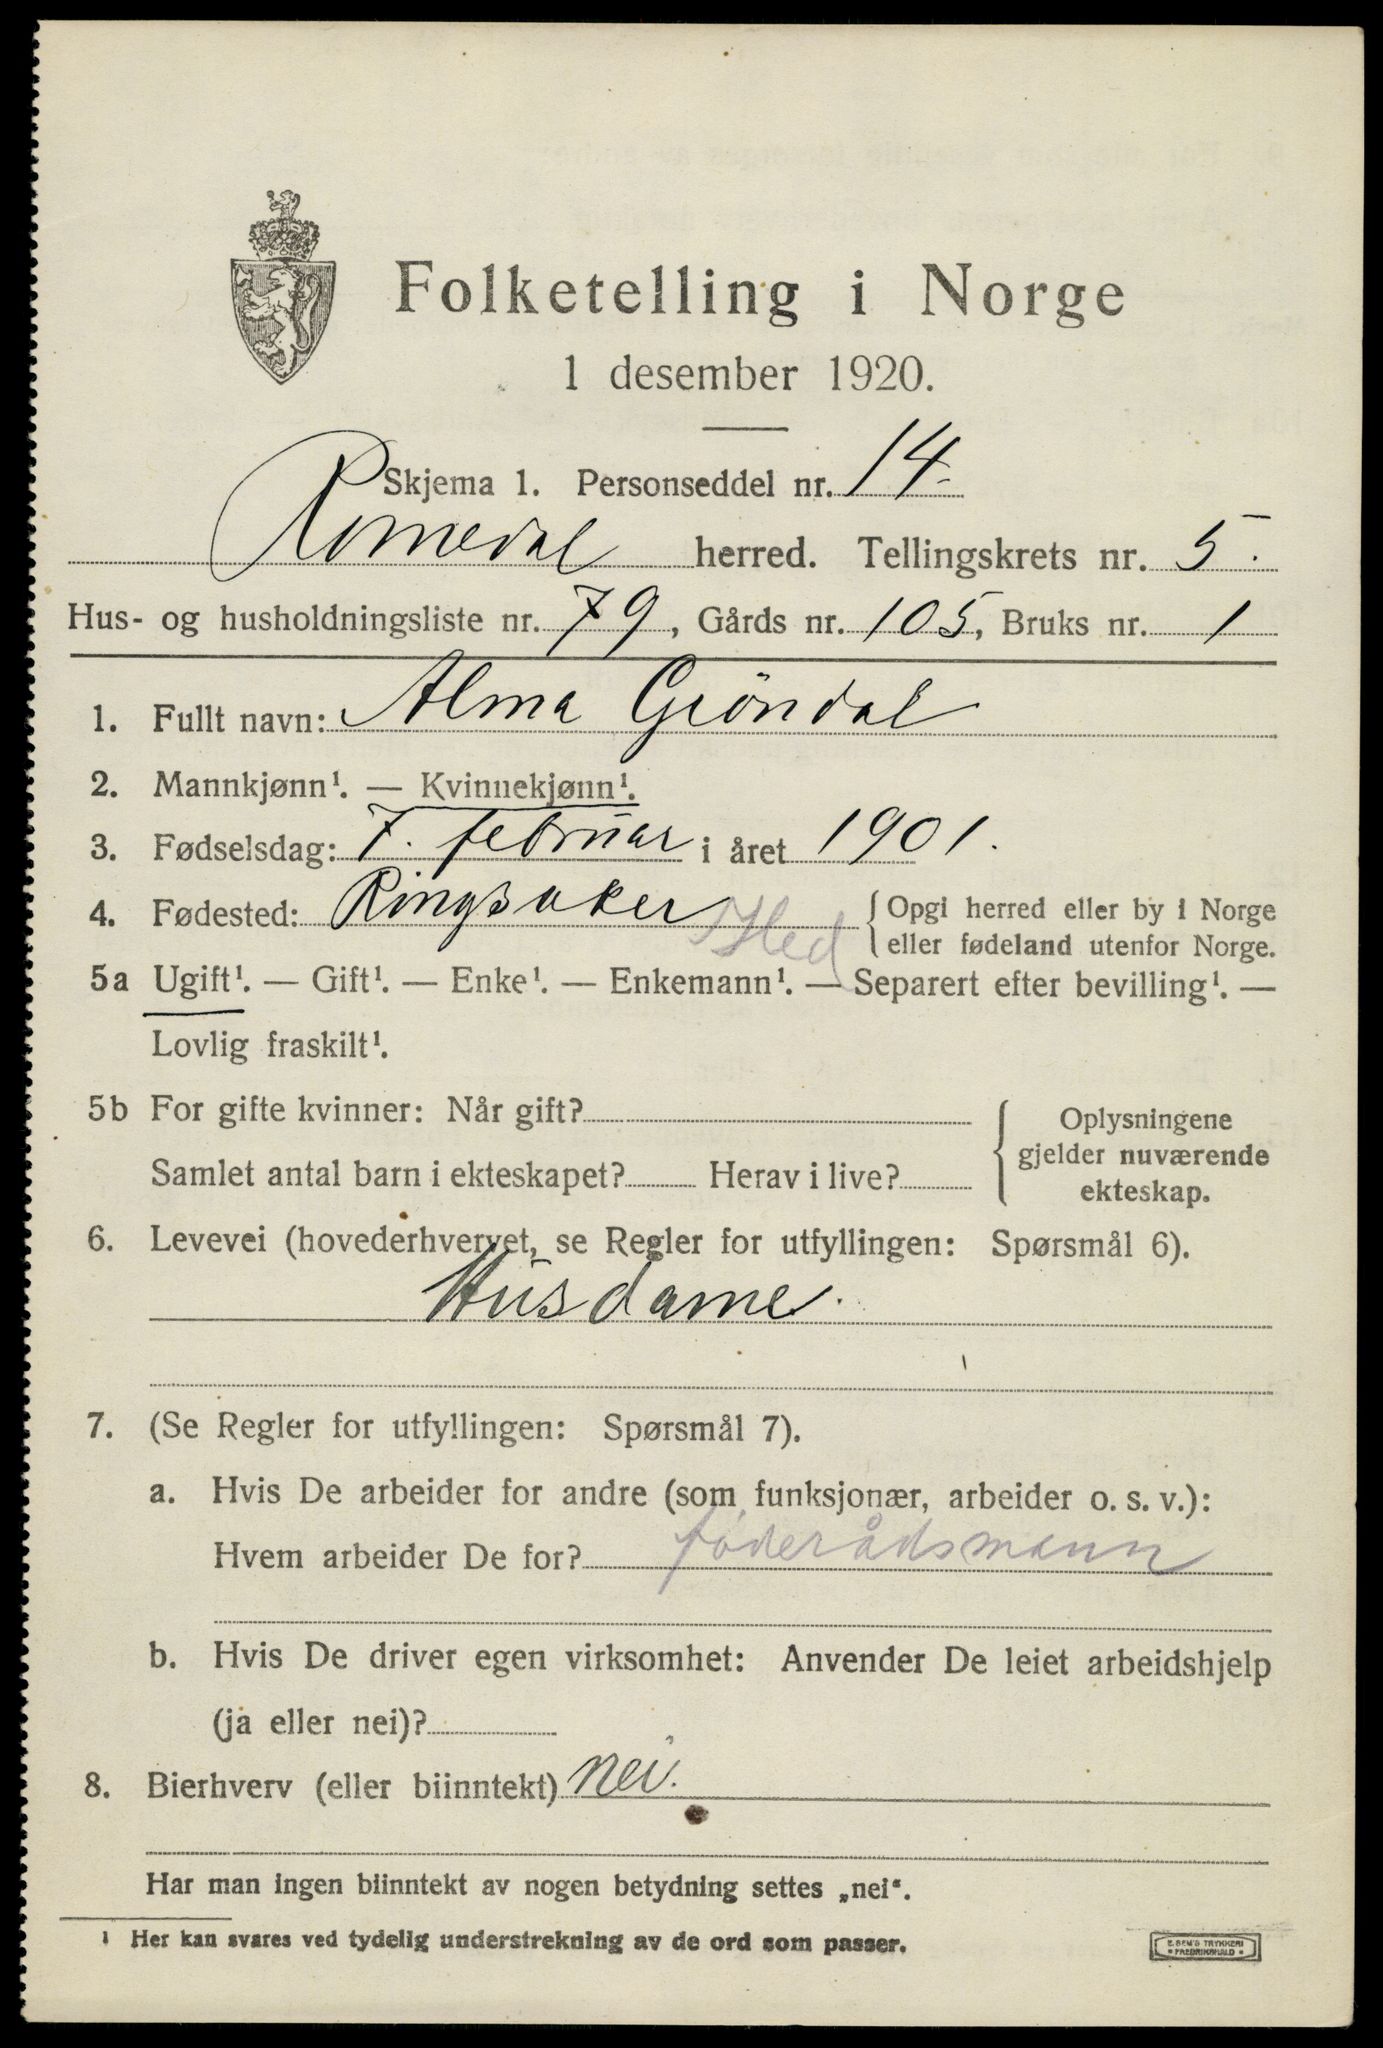 Folketelling i Norge
1 desember 1920.
Skjema 1. Personseddel nr. 14.
Romedal herred. Tellingskrets nr. 5.
Hus- og husholdningsliste nr. 79, Gårds nr. 105, Bruks nr. 1
1. Fullt navn: Alma Gröndal
2. Mannkjønn¹. — Kvinnekjønn¹.
3. Fødselsdag: 7. februar i året 1901.
4. Fødested: Ringsaker Hed { Opgi herred eller by i Norge
eller fødeland utenfor Norge.
5a Ugift¹. — Gift¹. — Enke¹. — Enkemann¹. — Separert efter bevilling¹. —
Lovlig fraskilt¹.
5b For gifte kvinner: Når gift?
Samlet antal barn i ekteskapet? Herav i live?
{ Oplysningene
gjelder nuværende
ekteskap.
6. Levevei (hovederhvervet, se Regler for utfyllingen: Spørsmål 6).
Husdame.
7. (Se Regler for utfyllingen: Spørsmål 7).
a. Hvis De arbeider for andre (som funksjonær, arbeider o. s. v.):
Hvem arbeider De for? føderådsmann
b. Hvis De driver egen virksomhet: Anvender De leiet arbeidshjelp
(ja eller nei)?
8. Bierhverv (eller biinntekt) nei.
Har man ingen biinntekt av nogen betydning settes „nei“.
¹ Her kan svares ved tydelig understrekning av de ord som passer.
E. SEM'S TRYKKERI
• FREDRIKSHALD •